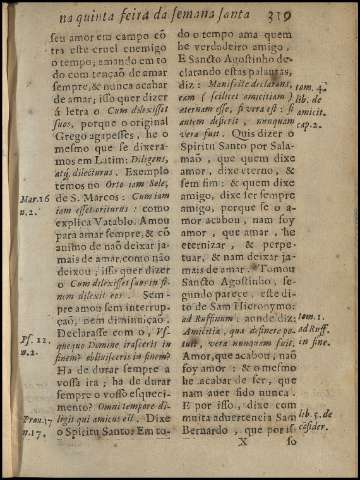 na quinta feira da semana santa 319
seu amor em campo cõ
tra este cruel enemigo
o tempo; amando em to
do com tenção de amar
sempre, & nunca acabar
de amar; isso quer dizer
á letra o Cum dilexisset
suos, porque o original
Grego agapesses, he o
mesmo que se dixera-
mos em Latim: Diligens,
atq; dilecturus. Exemplo
temos no Orto iam Sole,
Mar. 16 de S. Marcos: Cum iam
n. 2. iam esset oriturus: como
explica Vatablo. Amou
para amar sempre, & cõ
animo de naõ deixar ja-
mais de amar, como não
deixou; isso quer dizer
o Cum dilexisset suos in fi-
nem dilexit eos. Sem-
pre amou sem interrup-
çaõ, nem diminuiçaõ.
Declarasse com o, Ps-
Ps. 12. quequo Domine irasceris in
n. 2. finem? oblivisceris in finem?
Ha de durar sempre a
vossa ira; ha de durar
sempre o vosso esqueci-
mento? Omni tempore di-
Prou. 17 legit qui amicus est. Dixe
n. 17. o Spiritu Santo: Em to-
do o tempo ama quem
he verdadeiro amigo.
E Sancto Agostinho de-
clarando estas palauras,
diz: Manifeste declarans, tom. 4.
eam (scilicet amicitiam) lib. de
eternam esse, si vera est: si amicit.
autem desierit, nunquam cap. 2.
vera fuit. Quis dizer o
Spiritu Santo por Sala-
maõ, que quem dixe
amor, dixe eterno, &
sem fim: & quem dixe
amigo, dixe ser sempre
amigo, porque se o a-
mor acabou, nam foy
amor, que amar, he
eternizar, & perpe-
tuar, & nam deixar ja-
mais de amar. Tomou
Sancto Agostinho, se-
gundo parece, este di-
to de Sam Hieronymo:
ad Ruffinum, aonde diz: tom. 1.
Amicitia, qua desinere po- ad Ruff.
tuit, vera nunquam fuit. in fine.
Amor, que acabou, naõ
foy amor: & o mesmo
he acabar de ser, que
nam auer sido nunca.
E por isso, dixe com
muita aduertencia Sam lib. 5. de
Bernardo, que por is- cõsider.
X so